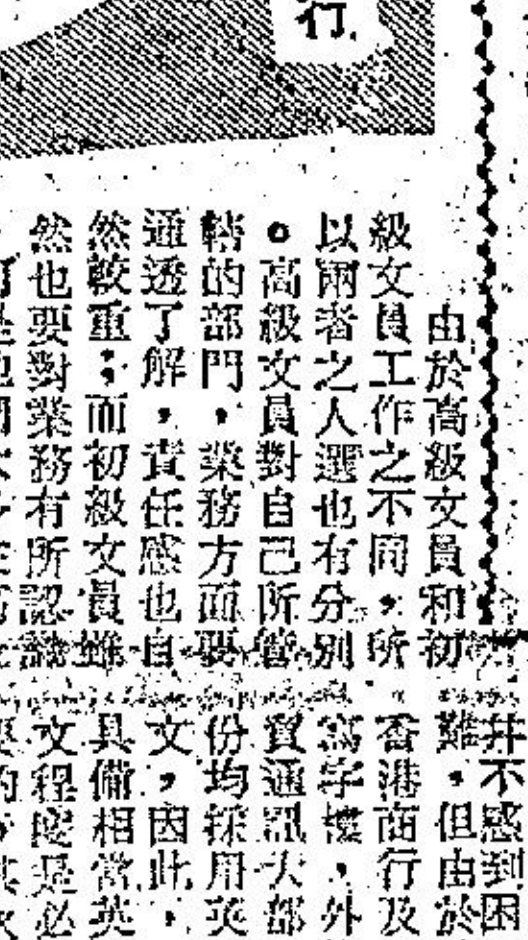 行.
由於高級文員和初
級文員工作之不同，所
以兩者之人選也有分別
。高級文員對自己所管
轄的部門，業務方面要
通透了解，責任感也自
然較重；而初級文員雖
然也要對業務有所認識
井不感到困
難，但由於
香港商行及
寫字樓，外
貿通訊大部
份均採用英
文，因此，
具備相當英
文程度是必